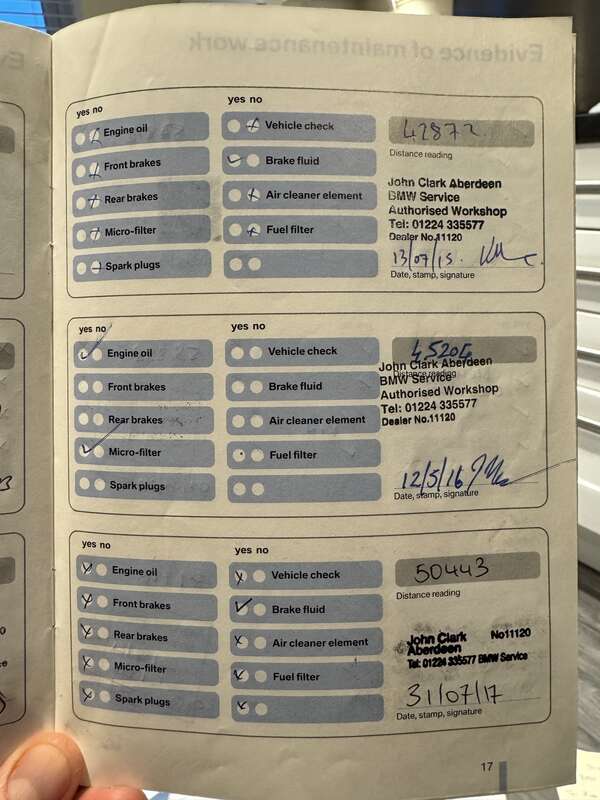 Evidence of maintenance work
yes no
yes no
Engine oil
Vehicle check
42872
Front brakes
Brake fluid
Distance reading
Rear brakes
Air cleaner element
Micro-filter
Fuel filter
Spark plugs
John Clark Aberdeen
BMW Service
Authorised Workshop
Tel: 01224 335577
Dealer No.11120
13/07/15
Date, stamp, signature
yes no
yes no
Engine oil
Vehicle check
45204
Front brakes
Brake fluid
Distance reading
Rear brakes
Air cleaner element
Micro-filter
Fuel filter
Spark plugs
John Clark Aberdeen
BMW Service
Authorised Workshop
Tel: 01224 335577
Dealer No.11120
12/5/16
Date, stamp, signature
yes no
yes no
Engine oil
Vehicle check
50443
Front brakes
Brake fluid
Distance reading
Rear brakes
Air cleaner element
Micro-filter
Fuel filter
Spark plugs
John Clark No11120
Aberdeen
Tel: 01224 335577 BMW Service
31/07/17
Date, stamp, signature
17